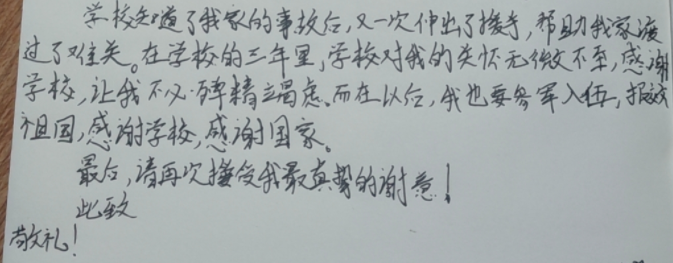 学校知道了我家的事故后,又一次伸出了援手,帮助我家渡
过了难关。在学校的三年里,学校对我的关怀无微不至,感谢
学校,让我不必殚精竭虑。而在以后,我也要参军入伍,报效
祖国,感谢学校,感谢国家。
最后,请再次接受我最真挚的谢意!
此致
敬礼!